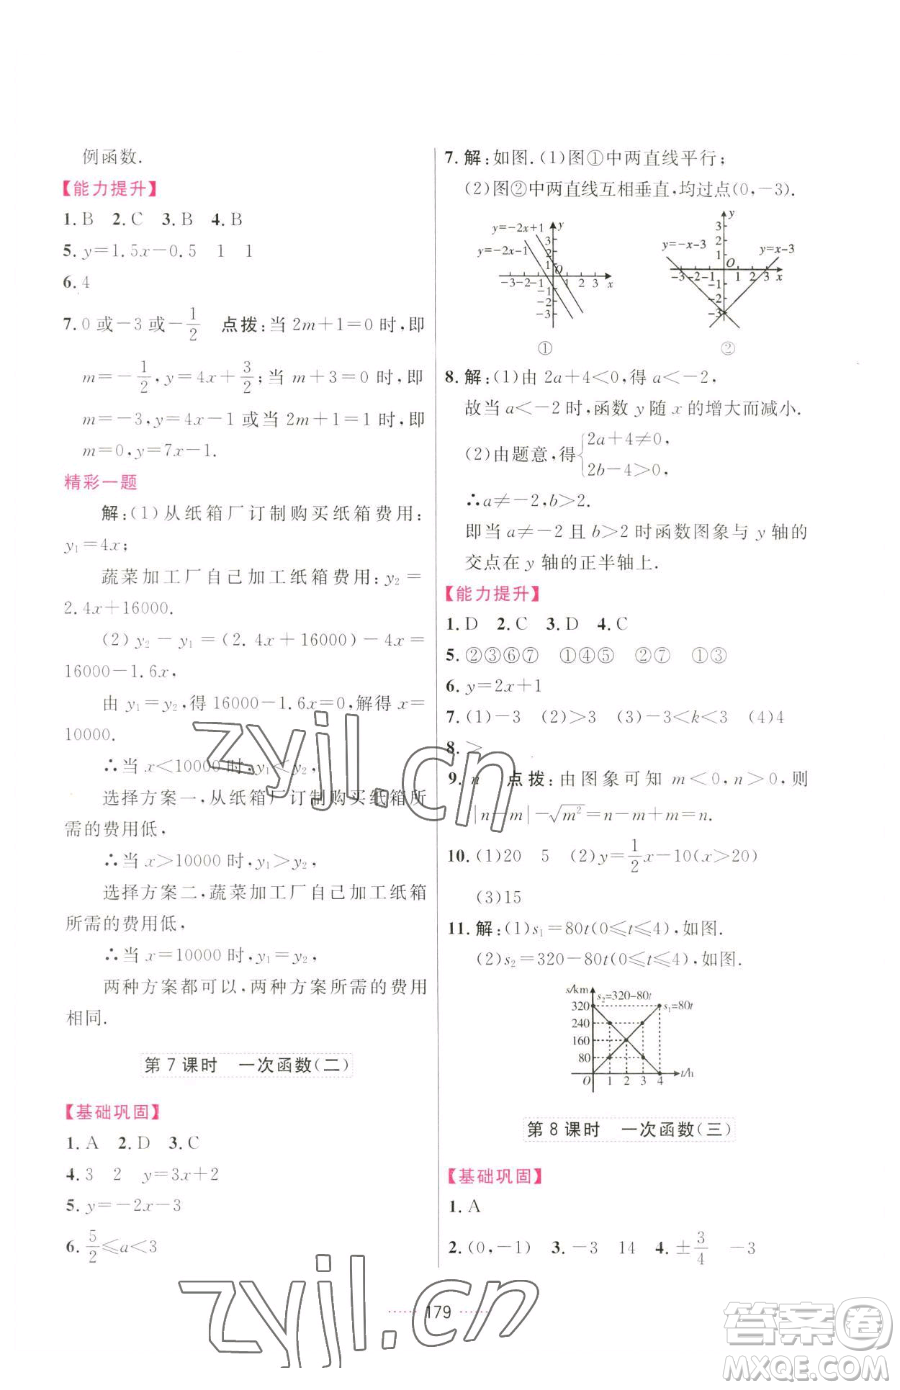 例函数.
【能力提升】
1.B 2.C 3.B 4.B
5.y=1.5x-0.5 1 1
6.4
7.0或-3或-1/2 点拨:当2m+1=0时,即
m=-1/2,y=4x+3/2;当m+3=0时,即
m=-3,y=4x-1或当2m+1=1时,即
m=0,y=7x-1.
精彩一题
解:(1)从纸箱厂订制购买纸箱费用:
y₁=4x;
蔬菜加工厂自己加工纸箱费用:y₂=
2.4x+16000.
(2)y₂-y₁=(2.4x+16000)-4x=
16000-1.6x,
由y₁=y₂,得16000-1.6x=0,解得x=
10000.
∴当x<10000时,y₁<y₂,
选择方案一,从纸箱厂订制购买纸箱所
需的费用低,
∴当x>10000时,y₁>y₂,
选择方案二,蔬菜加工厂自己加工纸箱
所需的费用低,
∴当x=10000时,y₁=y₂,
两种方案都可以,两种方案所需的费用
相同.
第7课时 一次函数(二)
【基础巩固】
1.A 2.D 3.C
4.3 2 y=3x+2
5.y=-2x-3
6.5/2≤a<3
7.解:如图.(1)图①中两直线平行;
(2)图②中两直线互相垂直,均过点(0,-3).
y=-2x+1
y=-2x-1
y
3
2
1
-3-2-1 O 1 2 3 x
-1
-2
-3
①
y=-x-3
y=x-3
y
3
2
1
O
-3-2-1 1 2 3 x
-1
-2
-3
②
8.解:(1)由2a+4<0,得a<-2,
故当a<-2时,函数y随x的增大而减小.
(2)由题意,得{2a+4≠0,
2b-4>0,
∴a≠-2,b>2.
即当a≠-2且b>2时函数图象与y轴的
交点在y轴的正半轴上.
【能力提升】
1.D 2.C 3.D 4.C
5.②③⑥⑦ ①④⑤ ②⑦ ①③
6.y=2x+1
7.(1)-3 (2)>3 (3)-3<k<3 (4)4
8.>
9.n 点拨:由图象可知m<0,n>0,则
|n-m|-√m²=n-m-(-m)=n-m+m=n.
10.(1)20 5 (2)y=1/2x-10(x>20)
(3)15
11.解:(1)s₁=80t(0≤t≤4),如图.
(2)s₂=320-80t(0≤t≤4),如图.
s/km
320
240
160
80
O 1 2 3 4 t/h
s₂=320-80t
s₁=80t
第8课时 一次函数(三)
【基础巩固】
1.A
2.(0,-1) 3.-3 14 4.±3/4 -3
179
zyjl.cn
zyjl.cn
答案圈
MXQE.COM